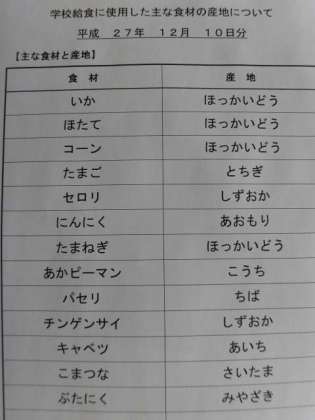 学校給食に使用した主な食材の産地について
平成 27年 12月 10日分
【主な食材と産地】
食 材 産 地
いか ほっかいどう
ほたて ほっかいどう
コーン ほっかいどう
たまご とちぎ
セロリ しずおか
にんにく あおもり
たまねぎ ほっかいどう
あかピーマン こうち
パセリ ちば
チンゲンサイ しずおか
キャベツ あいち
こまつな さいたま
ぶたにく みやざき